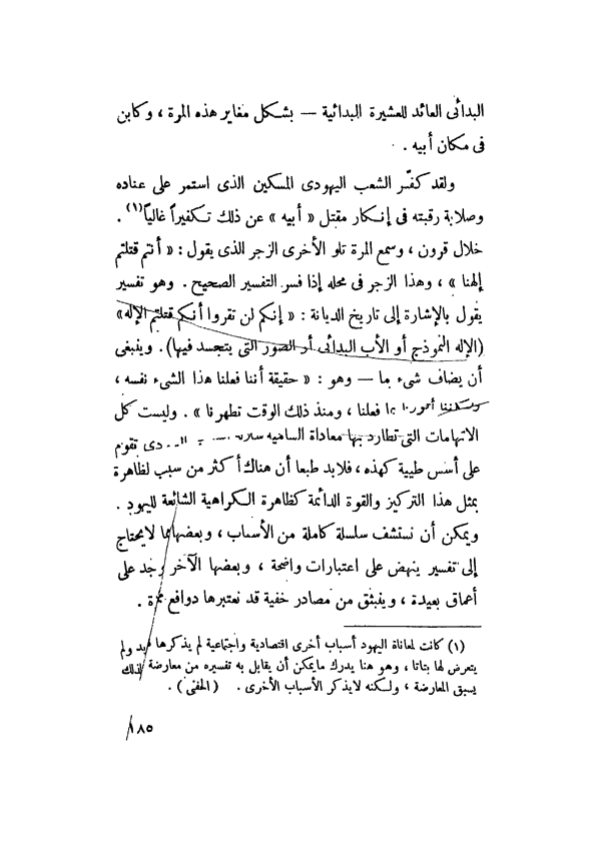 البدائى العائد للعشيرة البدائية — بشكل مغاير هذه المرة ، وكابن
فى مكان أبيه .
ولقد كفّر الشعب اليهودى المسكين الذى استمر على عناده
وصلابة رقبته فى إنكار مقتل « أبيه » عن ذلك تكفيراً غالياً(١) .
خلال قرون ، وسمع المرة تلو الأخرى الزجر الذى يقول : « أنتم قتلتم
إلهنا » ، وهذا الزجر فى محله إذا فسر التفسير الصحيح . وهو تفسير
يقول بالإشارة إلى تاريخ الديانة : « إنكم لن تقروا أنكم قتلتم الإله»
(الإله النموذج أو الأب البدائى أو الصور التى يتجسد فيها) . وينبغى
أن يضاف شىء ما — وهو : « حقيقة أننا فعلنا هذا الشىء نفسه ،
ولكننا أقررنا بما فعلنا ، ومنذ ذلك الوقت تطهرنا » . وليست كل
الاتهامات التى تطارد بها معاداة السامية تقوم
على أسس طيبة كهذه ، فلابد طبعا أن هناك أكثر من سبب لظاهرة
بمثل هذا التركيز والقوة الدائمة كظاهرة الكراهية الشائعة لليهود .
ويمكن أن نستشف سلسلة كاملة من الأسباب ، وبعضها لايحتاج
إلى تفسير ينهض على اعتبارات واضحة ، وبعضها الآخر وجد على
أعماق بعيدة ، وينبثق من مصادر خفية قد نعتبرها دوافع .
(١) كانت لمعاناة اليهود أسباب أخرى اقتصادية واجتماعية لم يذكرها فرويد ولم
يتعرض لها بتاتا ، وهو هنا يدرك مايمكن أن يقابل به تفسيره من معارضة لذلك
يسبق المعارضة ، ولكنه لايذكر الأسباب الأخرى . (الحفنى) .
١٨٥